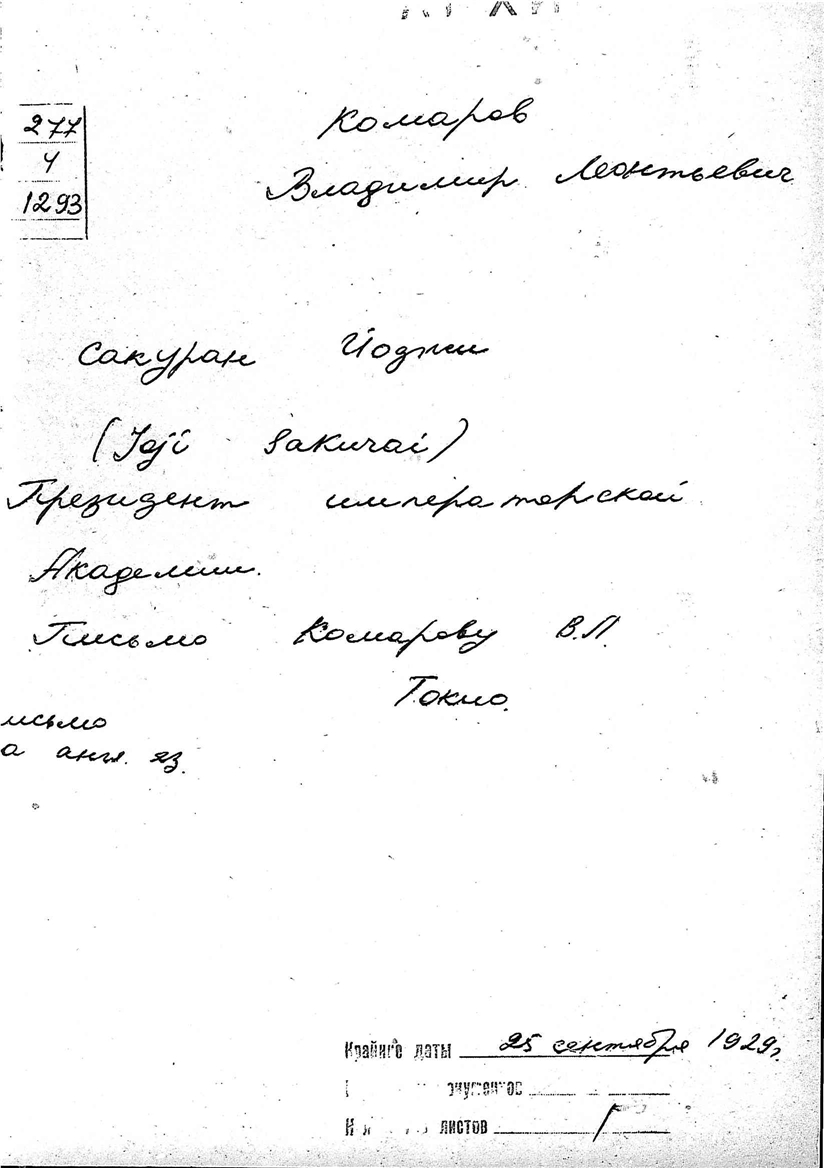 277
4
1293
Комаров
Владимир Леонтьевич
Сакураи Йоджи
(Joji Sakurai)
Президент императорской
Академии.
Письмо Комарову В.Л.
Токио.
исьмо
а англ. яз.
Крайние даты 25 сентября 1929 г.
листов 1